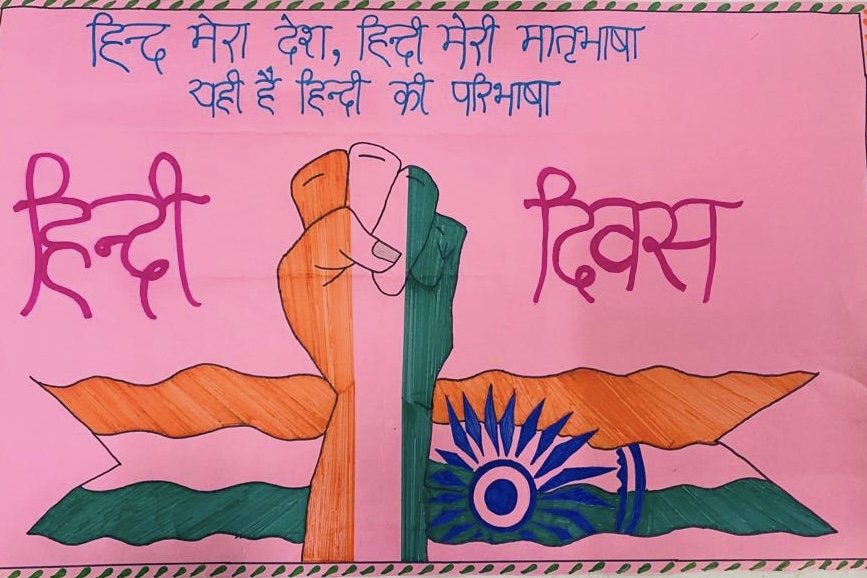 हिन्द मेरा देश, हिन्दी मेरी मातृभाषा
यही है हिन्दी की परिभाषा
हिन्दी दिवस